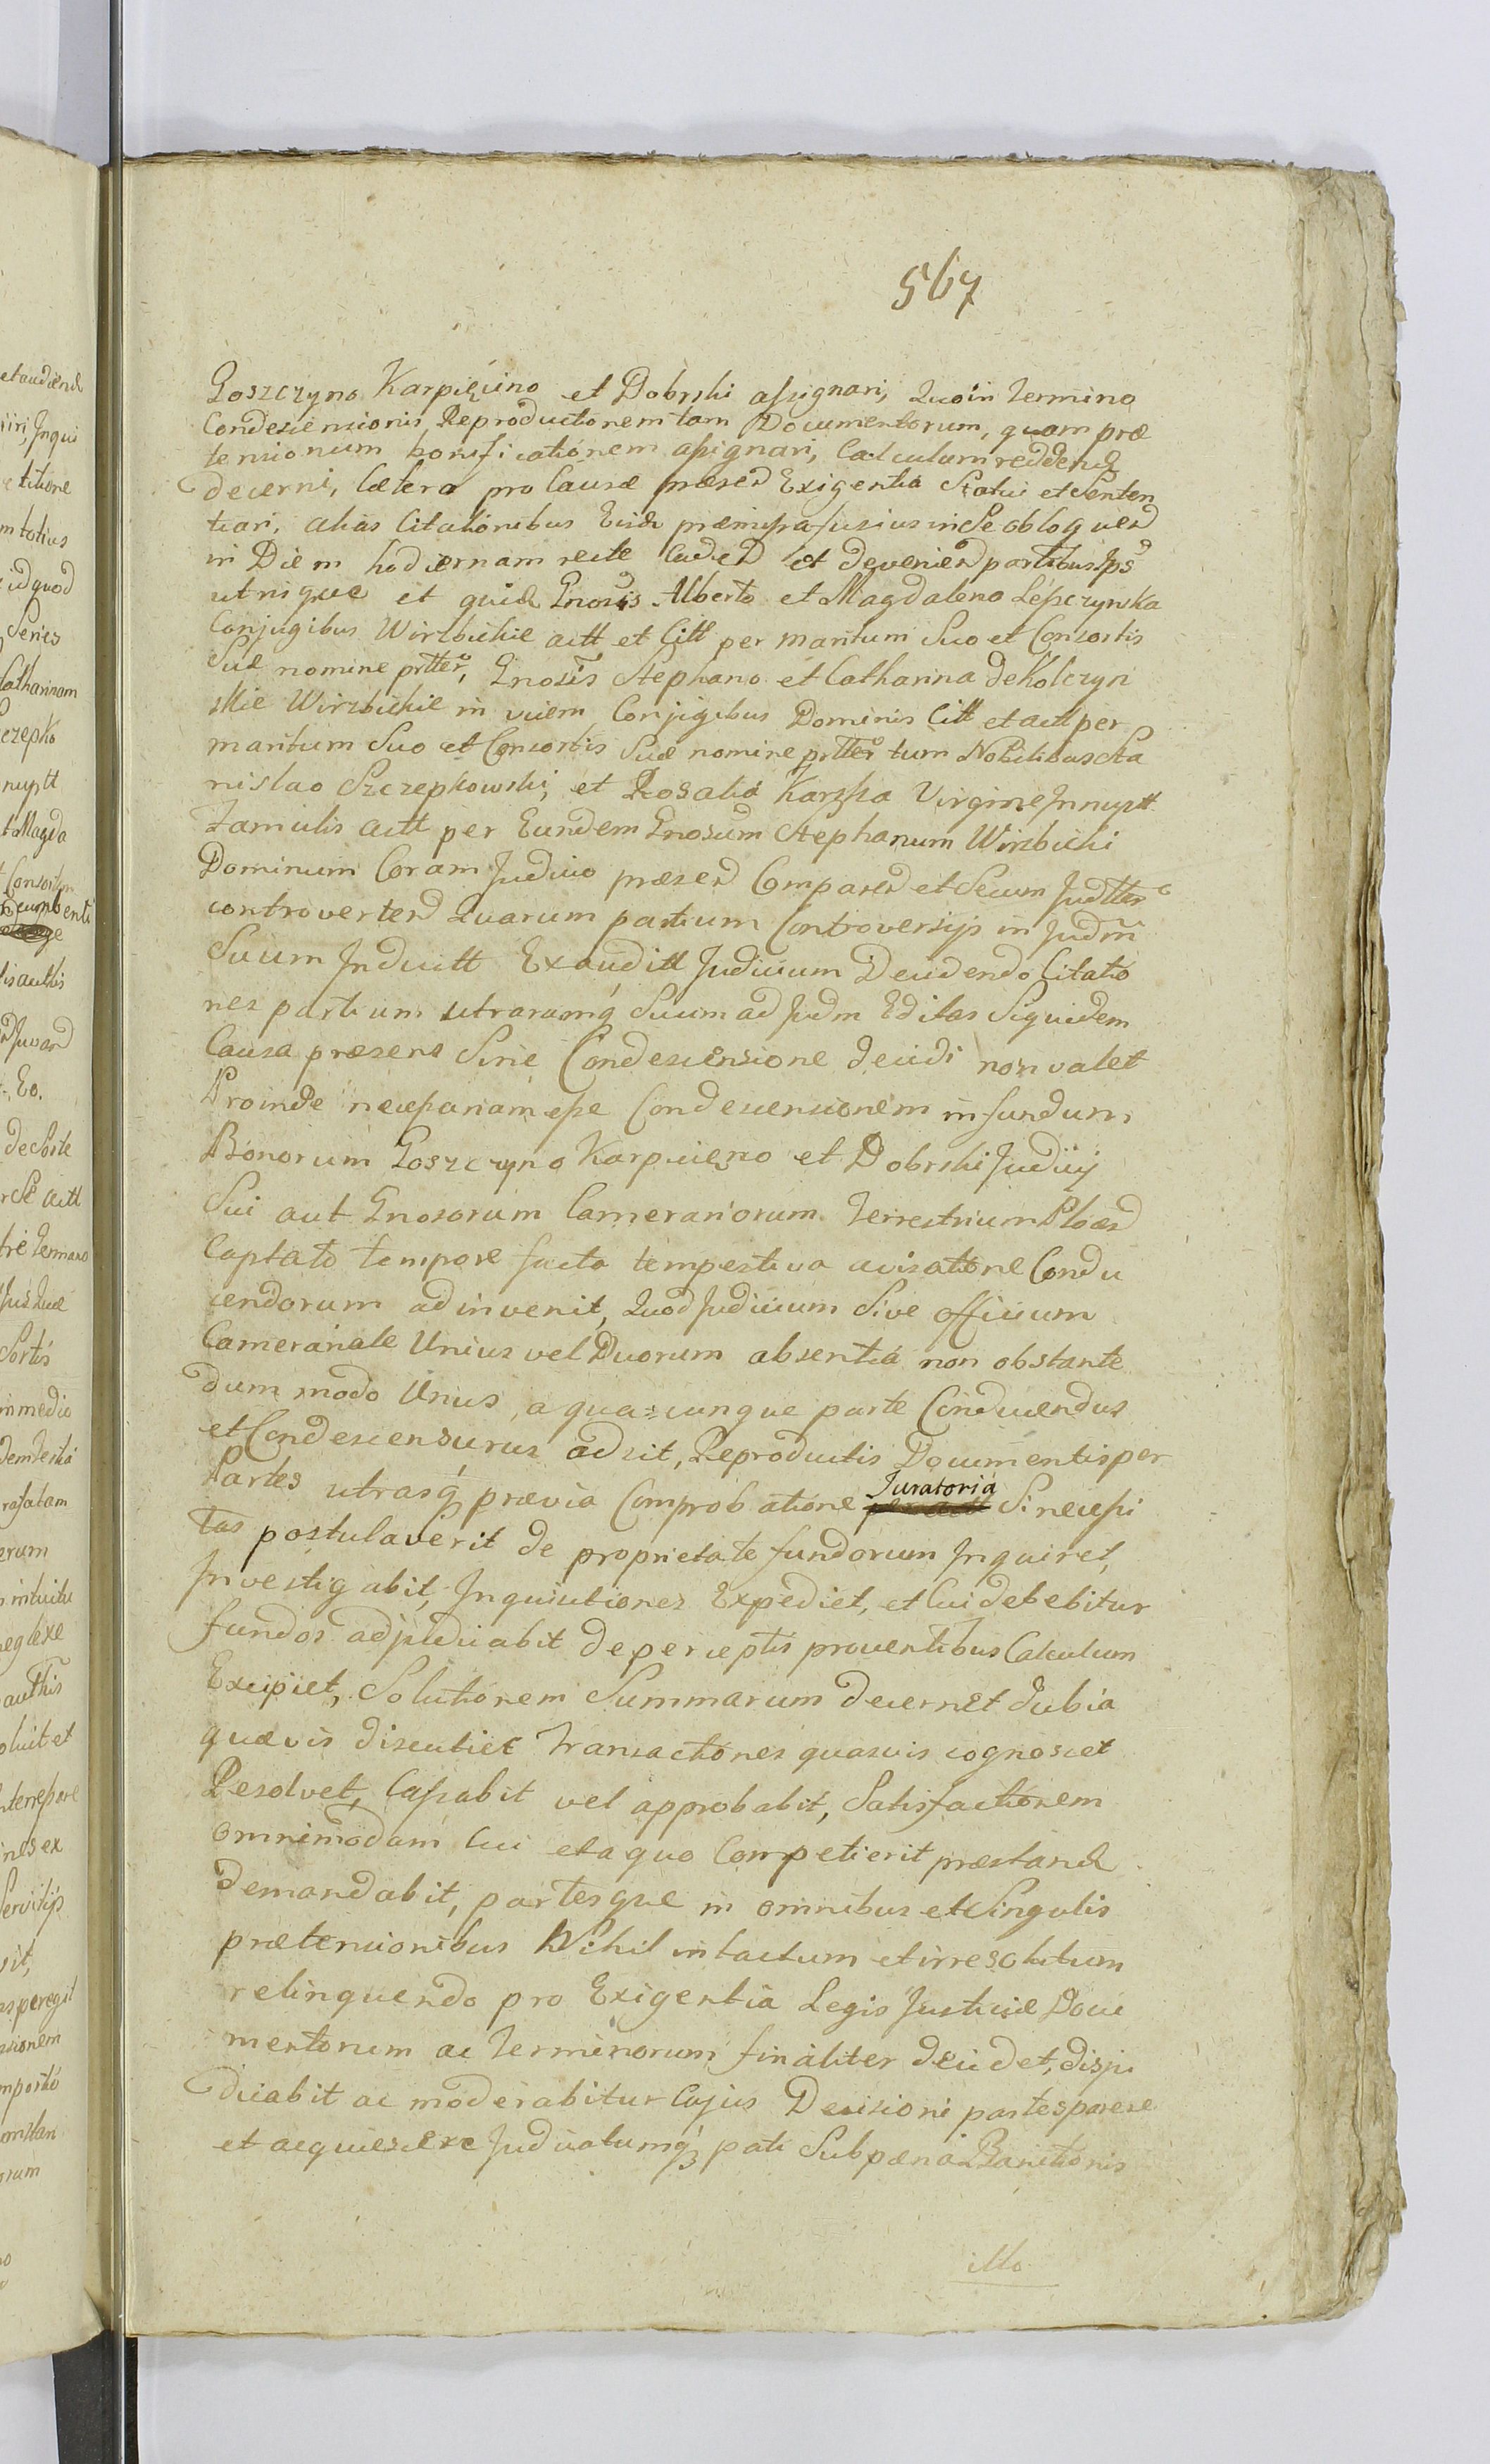 567
Goszczyno Karpięcino et Dobrski assignari, Quo in Termino
Condescensionis, Reproductionem tam Documentorum, quam præ
tensionum bonificationem assignari, Calculum reddend
decerni, Cætera pro Causæ præsen Exigentia Statui et Senten
tiari, alias Citationibus Eisd præmissa fusius in Se obloquen
in Diem hodiernam recte Caden et devenien partibus Ips
utrisque et quid Gnosis Alberto et Magdalena Lepczynska
Conjugibus Wirzbickie actt et Citt per maritum Suo et Consortis
Suæ nomine prtter, Gnosis Stephano et Catharina de Kolczyn
skie Wirzbickie in vicem Conjugibus Dominis Citt et actt per
maritum Suo et Consortis Suæ nomine prtter tum Nobilibus Sta
nislao Szczepkowski, et Rosalia Karska Virgine Innuptt
Famulis actt per Eundem Gnosum Stephanum Wirzbicki
Dominum Coram Judicio præsen Comparen et Secum Judtter
controverten Quarum partium Controversijs in Judm
Suum Inductt Exauditt Judicium Decidendo Citatio
nes partium utrarumq Suum ad Judm Editas Siquidem
Causa præsens Sine Condescensione decidi non valet
Proinde necessariam esse Condescensionem in fundum
Bonorum Goszczyno Karpicino et Dobrski Judicij
Sui aut Gnosorum Camerariorum Terrestrium Ploen
Captato tempore facta tempestiva avisatione Condu
cendorum adinvenit, Quod Judicium Sive officium
Camerariale Unius vel Duorum absentia non obstante
dum modo Unus, a qua=cunque parte Conducendus
et Condescensurus adsit, Reproductis Documentis per
Partes utrasq prævia Comprobatione Juratoria Si necessi
tas postulaverit de proprietate fundorum Inquiret,
Investigabit, Inquisitiones Expediet, et Cui debebitur
fundos adjudicabit de perceptis proventibus Calculum
Excipiet, Solutionem Summarum decernet dubia
quævis discutiet Transactiones quasvis cognoscet
Resolvet, Cassabit vel approbabit, Satisfactionem
omnimodam Cui et a quo Competierit præstand
demandabit, partesque in omnibus et Singulis
prætensionibus Nihil intactum et irresolutum
relinquendo pro Exigentia Legis Justiciæ Docu
mentorum ac Terminorum finaliter decidet, disju
dicabit ac moderabitur Cujus Decisioni partes parere
et acquiescere Judicatumq pati Sub pæna Banitionis
illo